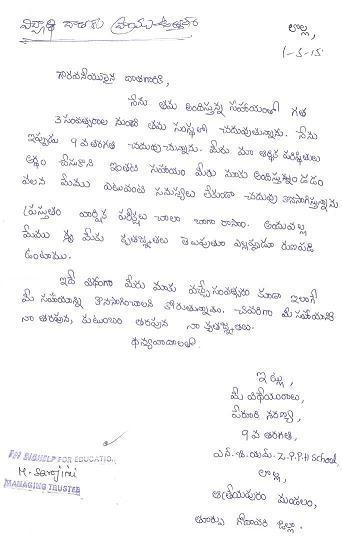 విద్యార్థి దాతకు వ్రాయు ఉత్తరం
లొల్ల,
1-5-15
గౌరవనీయులైన దాతగారికి,
నేను తమ అందిస్తున్న సహాయంతో గత
3 సంవత్సరాల నుంచి తమ సంస్థలో చదువుతున్నాను. నేను
ఇప్పుడు 9 వ తరగతి చదువుచున్నాను. మీరు మా ఆర్థిక పరిస్థితులు
అర్థం చేసుకొని ఇంతటి సహాయం మీరు మాకు అందిస్తున్నందు
వలన మేము ఎటువంటి సమస్యలు లేకుండా చదువు కొనసాగిస్తున్నాను
ప్రస్తుతం వార్షిక పరీక్షలు చాలా బాగా రాసాం. అందువల్ల
మేము మీకు కృతజ్ఞతలు తెలుపుతూ ఎల్లప్పుడూ రుణపడి
ఉంటాము.
ఇదే విధంగా మీరు మాకు వచ్చే సంవత్సరం కూడా ఇలాగే
మీ సహాయాన్ని కొనసాగించాలని కోరుతున్నాను. చివరిగా మీ సహాయానికి
నా తరపున, కుటుంబం తరపున నా కృతజ్ఞతలు.
ధన్యవాదాలతో
ఇట్లు,
మీ విధేయురాలు,
పేరూరి శరణ్య
9 వ తరగతి,
ఎన్.జి.యమ్. Z.P.P.H School,
లొల్ల,
ఆత్రేయపురం మండలం,
తూర్పు గోదావరి జిల్లా.
FOR EDUCATION
M. Sarojini
MANAGING TRUSTEE